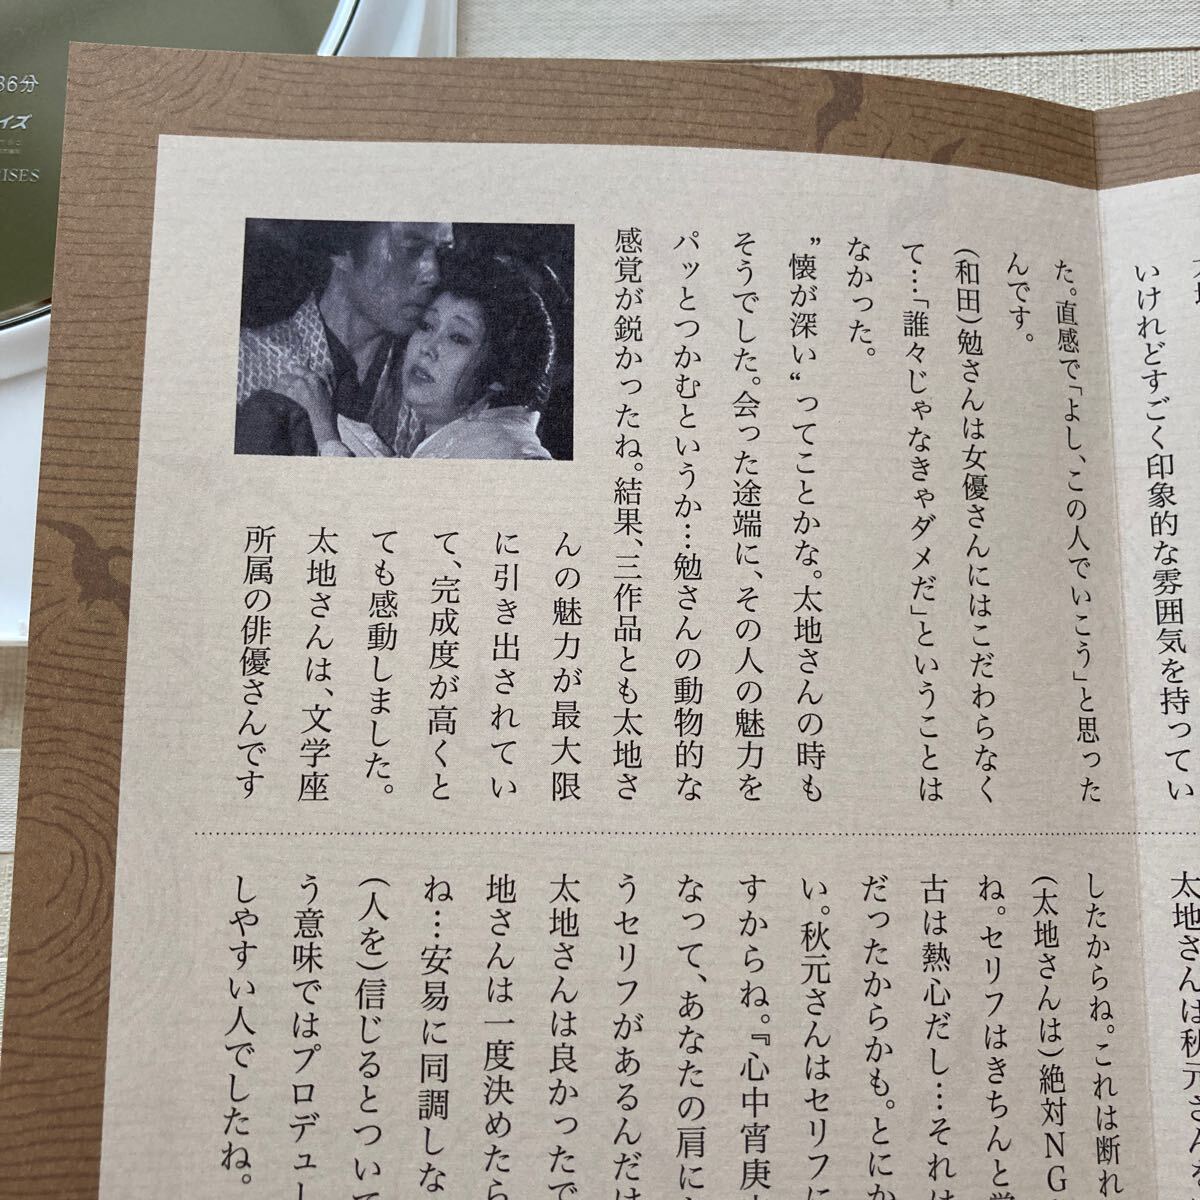 36分
イズ
RISES
いけれどすごく印象的な雰囲気を持ってい
た。直感で「よし、この人でいこう」と思った
んです。
(和田)勉さんは女優さんにはこだわらなく
て…「誰々じゃなきゃダメだ」ということは
なかった。
“懐が深い“ってことかな。太地さんの時も
そうでした。会った途端に、その人の魅力を
パッとつかむというか…勉さんの動物的な
感覚が鋭かったね。結果、三作品とも太地さ
んの魅力が最大限
に引き出されてい
て、完成度が高くと
ても感動しました。
太地さんは、文学座
所属の俳優さんです
太地さんは秋元さん
したからね。これは断れ
(太地さんは)絶対NG
ね。セリフはきちんと覚
古は熱心だし…それは
だったからかも。とにか
い。秋元さんはセリフに
すからね。『心中宵庚
なって、あなたの肩に
うセリフがあるんだけ
太地さんは良かったで
地さんは一度決めたら
ね…安易に同調しな
(人を)信じるとついて
う意味ではプロデュー
しやすい人でしたね。